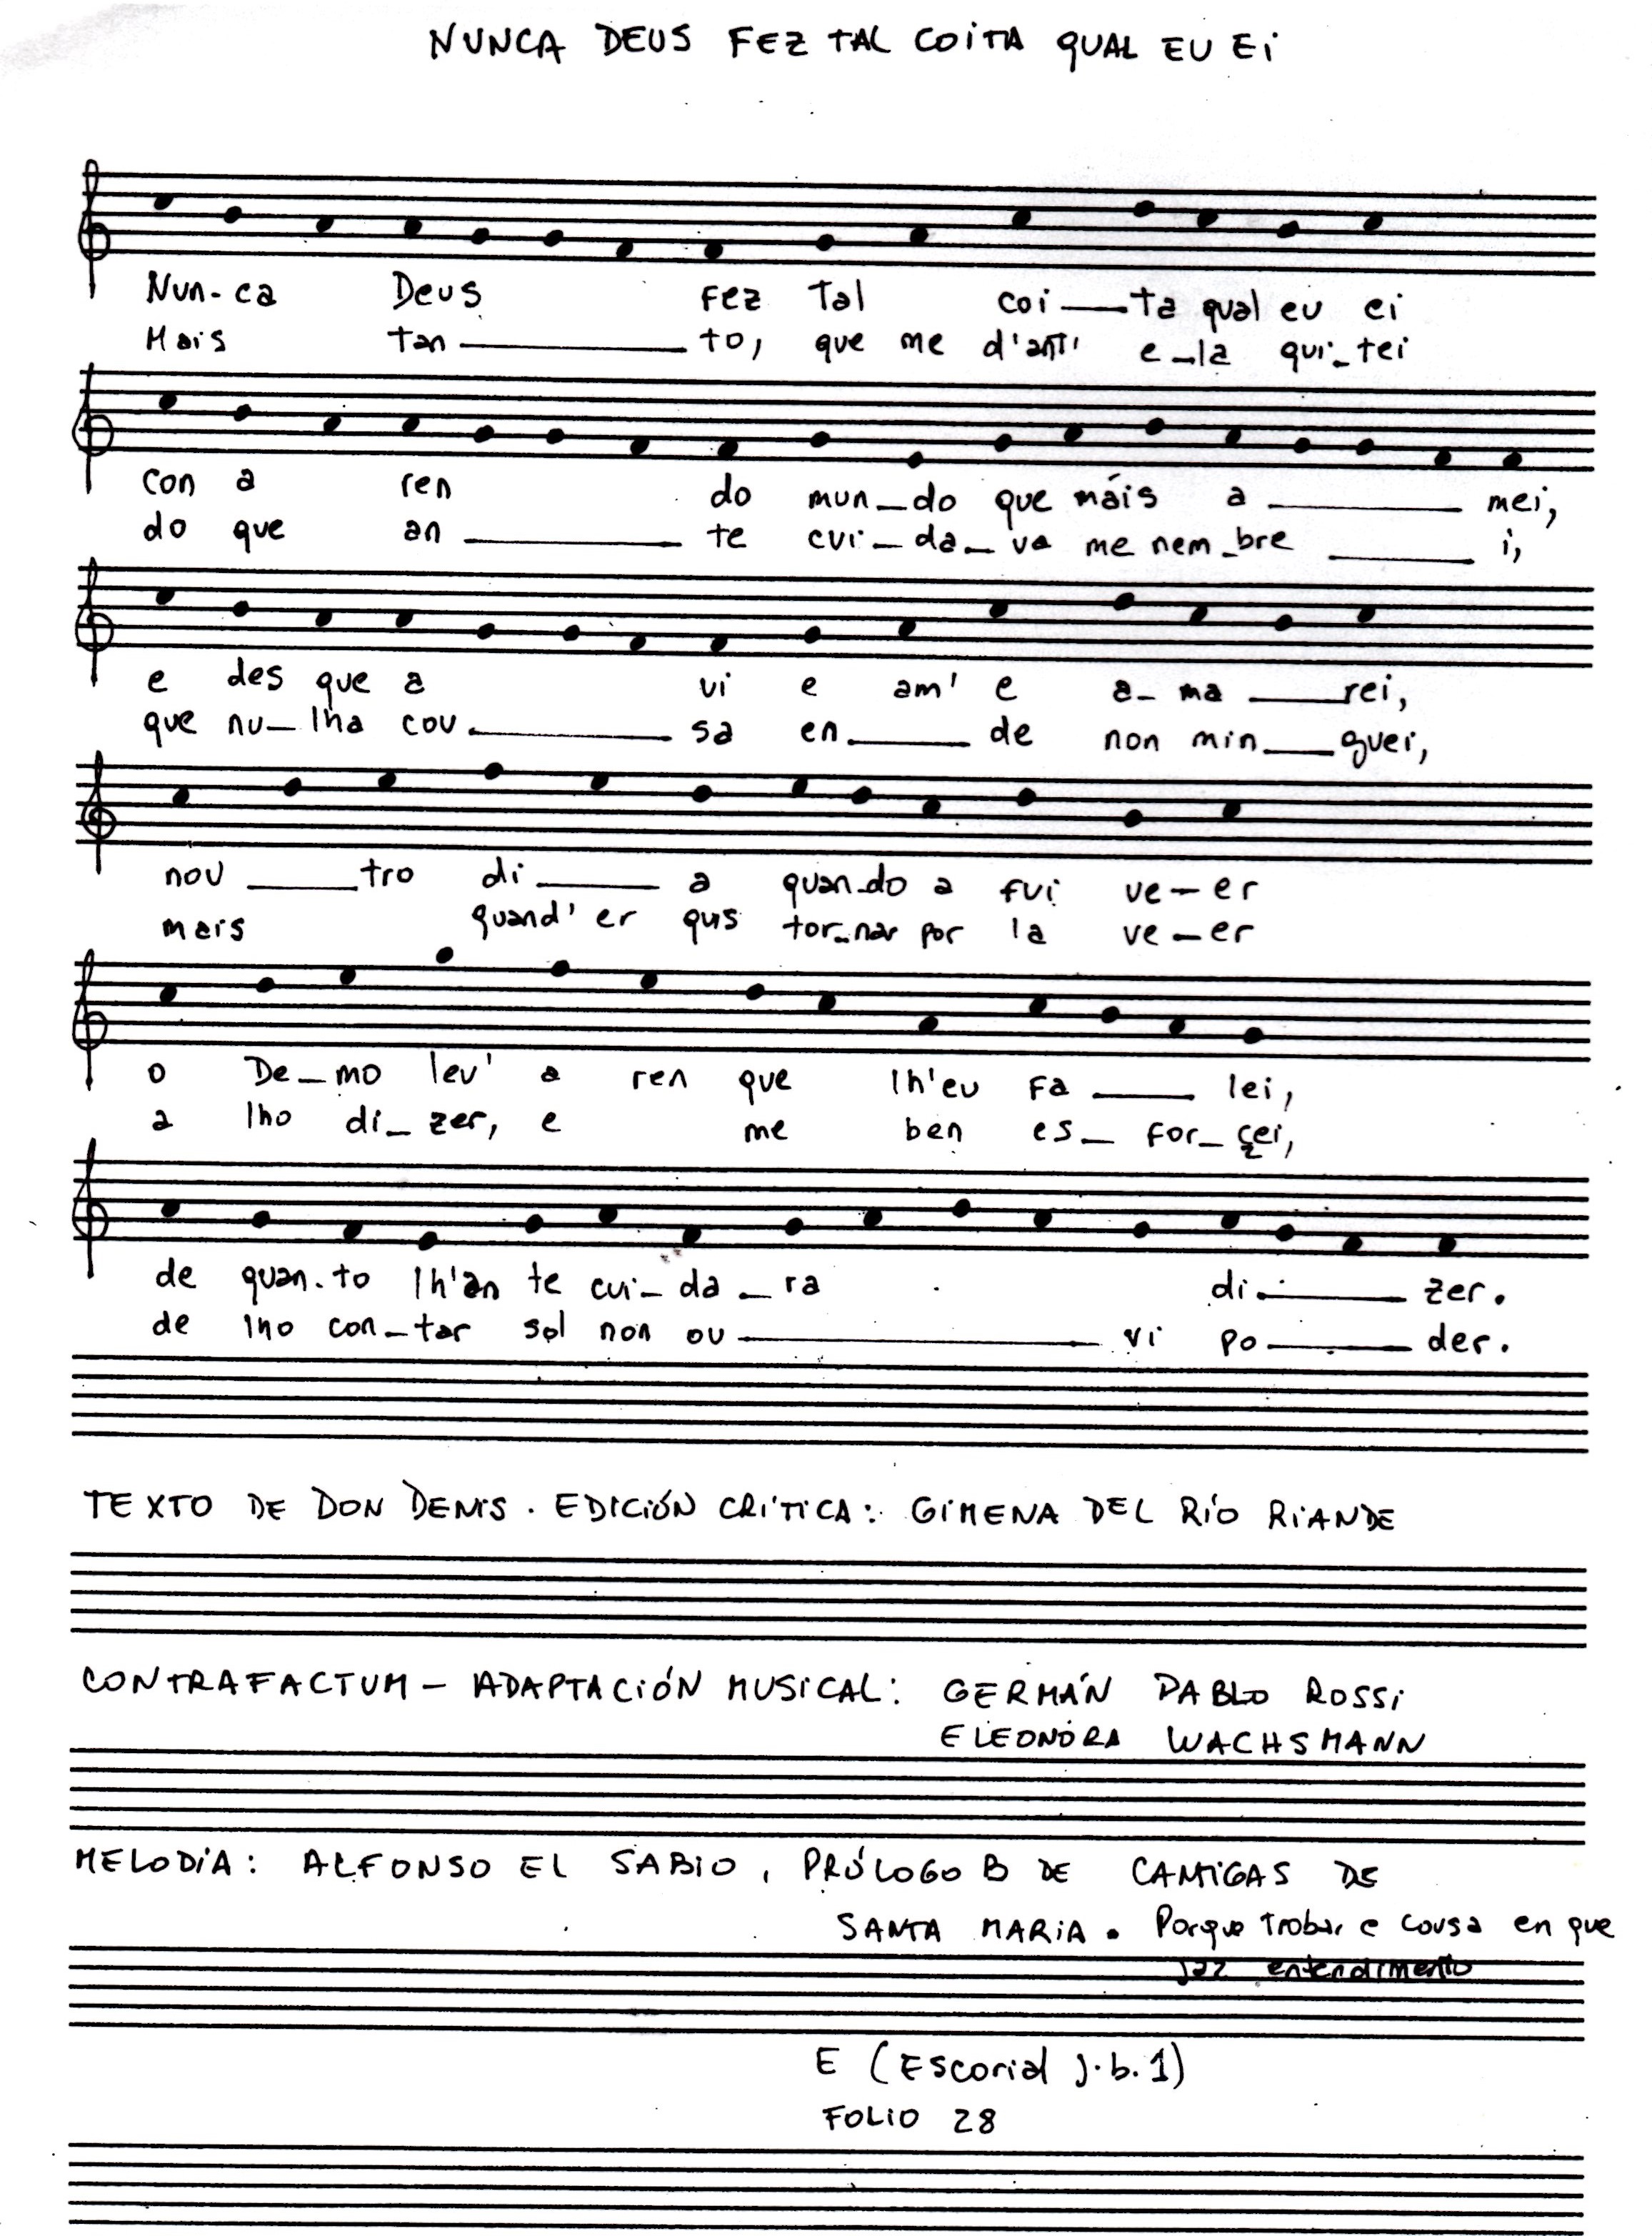 NUNCA DEUS FEZ TAL COITA QUAL EU EI
Nun-ca Deus Fez Tal coi—ta qual eu ei
Mais tan—to, que me d'ant' e-la qui-tei
con a ren do mun-do que máis a—mei,
do que an—te cui-da-va me nem-bre—i,
e des que a vi e am' e a-ma—rei,
que nu-lha cou—sa en—de non min—guei,
nou—tro di—a quan-do a fui ve-er
mais quand' er quis tor-nar por la ve-er
o De-mo lev' a ren que lh'eu Fa—lei,
a lho di-zer, e me ben es-for-çei,
de quan-to lh'an te cui-da-ra di—zer.
de lho con-tar sol non ou—vi po—der.
TEXTO DE DON DENIS. EDICIÓN CRÍTICA: GIMENA DEL RÍO RIANDE
CONTRAFACTUM – ADAPTACIÓN MUSICAL: GERMÁN PABLO ROSSI
ELEONORA WACHSMANN
MELODÍA: ALFONSO EL SABIO, PRÓLOGO B DE CANTIGAS DE
SANTA MARIA. Porque trobar e cousa en que
jaz entendimento
E (Escorial j.b.1)
FOLIO 28